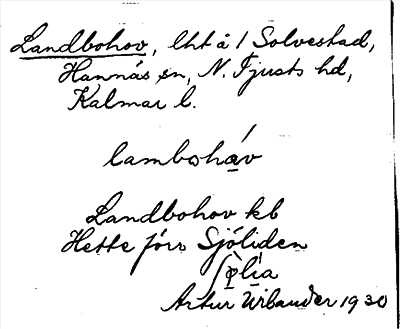 Landbohov, lht å 1 Solvestad,
Hannäs sn, N. Tjusts hd,
Kalmar l.
lambohàv
Landbohov kb
Hette förr Sjöliden
Artur Urbander 1930